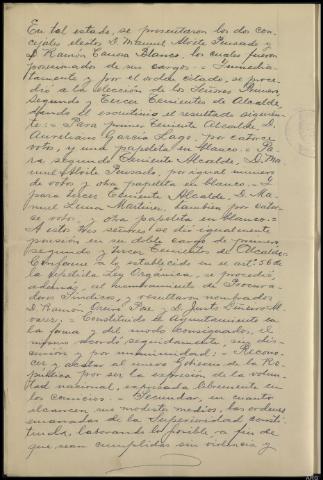 En tal estado, se presentaron los dos con-
cejales electos D. Manuel Aborte Pensado y
D. Ramón Canosa Blanco, los cuales fueron
posesionados de sus cargos.= Inmedia-
tamente y por el orden citado, se proce-
dió a la elección de los Señores Primero,
Segundo y Tercer Tenientes de Alcalde,
dando el escrutinio el resultado siguien-
te:= Para primer Teniente Alcalde D.
Aureliano García Lago, por catorce
votos, y una papeleta en blanco.= Pa-
ra segundo Teniente Alcalde, D. Ma-
nuel Aborte Pensado, por igual número
de votos y otra papeleta en blanco.= Y
para Tercer Teniente Alcalde D. Ma-
nuel Luna Martínez, también por cator-
ce votos, y otra papeleta en blanco.=
A estos tres señores se dió igualmente
posesión en su doble cargo de primero,
segundo y tercer Tenientes de Alcalde.=
Conforme a lo establecido en el artº 56 de
la repetida Ley Orgánica, se procedió,
además, al nombramiento de Procura-
dores Síndicos, y resultaron nombrados
D. Ramón Paz y D. Justo
= Constituido el Ayuntamiento en
la forma y del modo consignados, el
mismo acordó seguidamente, sin dis-
cusión y por unanimidad:= Recono-
cer y acatar al nuevo Gobierno de la Re-
pública por ser la expresión de la volun-
tad nacional, expresada libremente en
los comicios.= Secundar, en cuanto
alcancen sus modestos medios, las ordenes
emanadas de la Superioridad consti-
tuida, laborando lo posible a fin de
que sean cumplidas sin violencia y